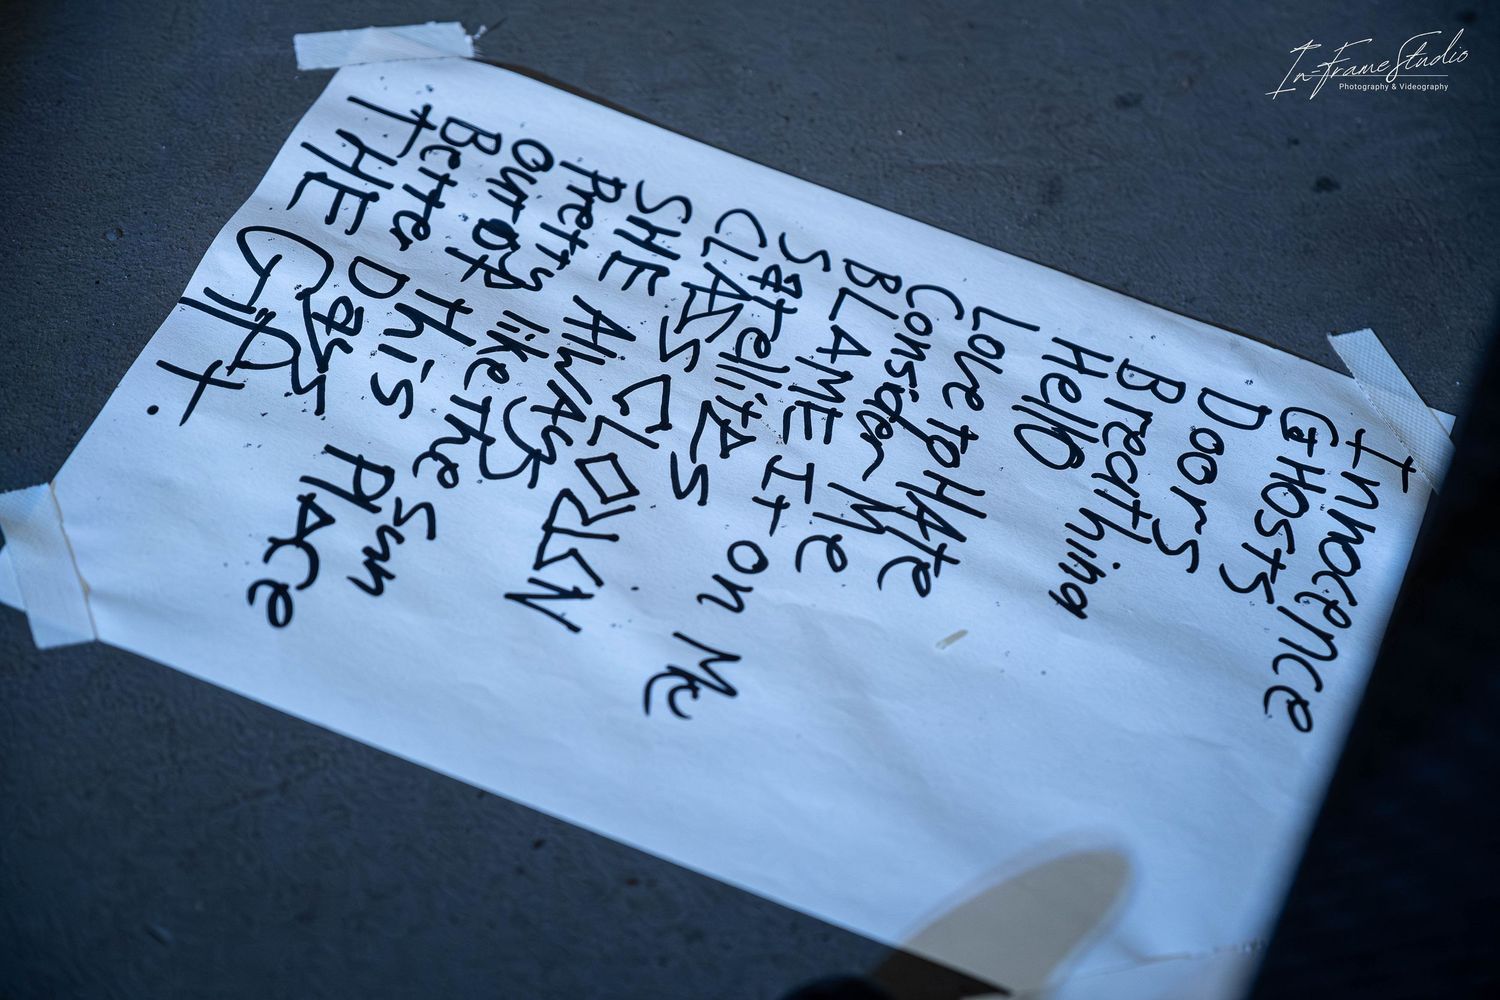 Innocence
GHOSTS
DOORS
Breathing
Hello
Love to HAte
Consider Me
BLAME It on Me
Satellites
CLASS CLOWN
SHE AlwAyS
Pretty like The Sun
Out of this Place
Better Days
THE Gift.
In-Frame Studio
Photography & Videography